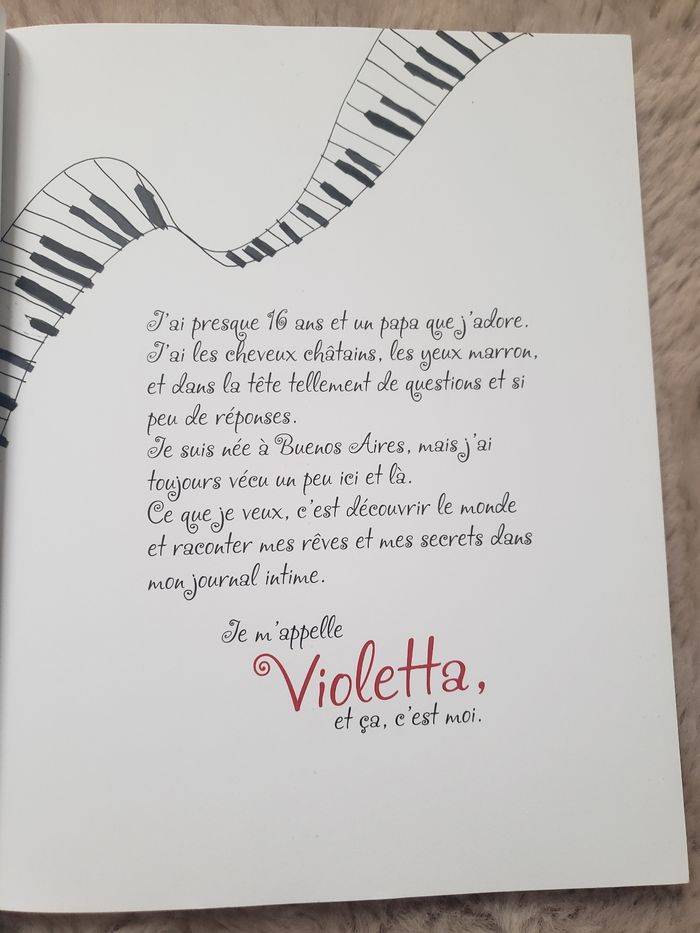 J'ai presque 16 ans et un papa que j'adore.
J'ai les cheveux châtains, les yeux marron,
et dans la tête tellement de questions et si
peu de réponses.
Je suis née à Buenos Aires, mais j'ai
toujours vécu un peu ici et là.
Ce que je veux, c'est découvrir le monde
et raconter mes rêves et mes secrets dans
mon journal intime.
Je m'appelle
Violetta,
et ça, c'est moi.